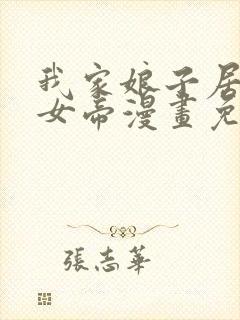 我家娘子居
女帝漫畫免
張志華